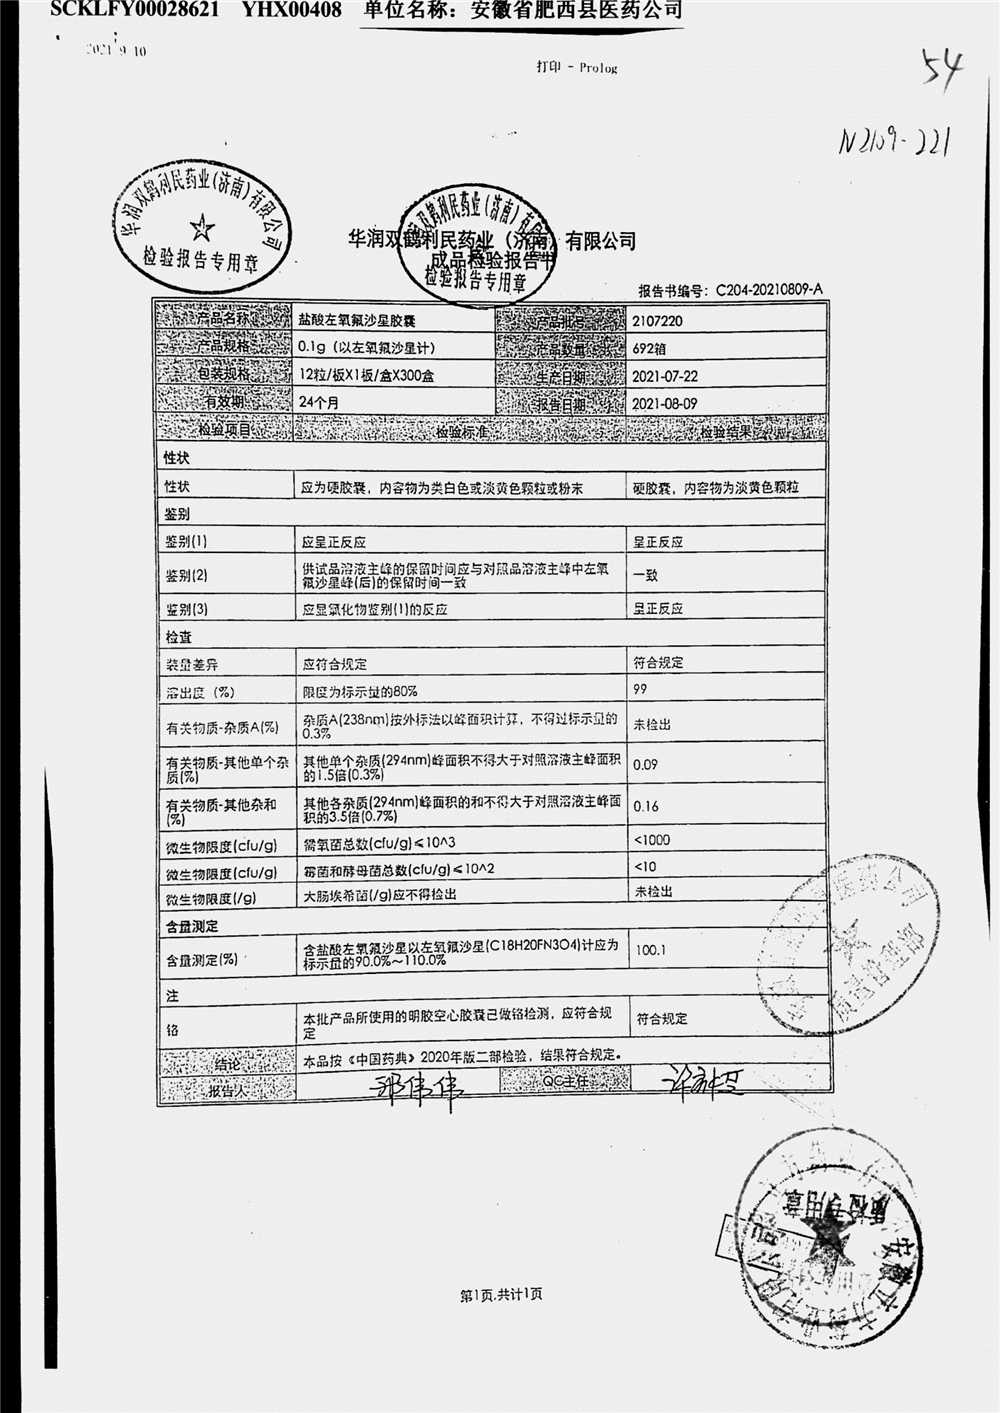 SCKLFY00028621 YHX00408 单位名称：安徽省肥西县医药公司
2021 9 10
打印 - Prolog
54
N2109-221
华润双鹤利民药业(济南)有限公司
检验报告专用章
华润双鹤利民药业（济南）有限公司
成品检验报告书
检验报告专用章
报告书编号：C204-20210809-A
产品名称 盐酸左氧氟沙星胶囊 产品批号 2107220
产品规格 0.1g（以左氧氟沙星计） 产品数量 692箱
包装规格 12粒/板X1板/盒X300盒 生产日期 2021-07-22
有效期 24个月 报告日期 2021-08-09
检验项目 检验标准 检验结果
性状
性状 应为硬胶囊，内容物为类白色或淡黄色颗粒或粉末 硬胶囊，内容物为淡黄色颗粒
鉴别
鉴别(1) 应呈正反应 呈正反应
鉴别(2) 供试品溶液主峰的保留时间应与对照品溶液主峰中左氧
氟沙星峰(后)的保留时间一致 一致
鉴别(3) 应显氯化物鉴别(1)的反应 呈正反应
检查
装量差异 应符合规定 符合规定
溶出度（%） 限度为标示量的80% 99
有关物质-杂质A(%) 杂质A(238nm)按外标法以峰面积计算，不得过标示量的
0.3% 未检出
有关物质-其他单个杂
质(%) 其他单个杂质(294nm)峰面积不得大于对照溶液主峰面积
的1.5倍(0.3%) 0.09
有关物质-其他杂和
(%) 其他各杂质(294nm)峰面积的和不得大于对照溶液主峰面
积的3.5倍(0.7%) 0.16
微生物限度(cfu/g) 需氧菌总数(cfu/g)≤10^3 <1000
微生物限度(cfu/g) 霉菌和酵母菌总数(cfu/g)≤10^2 <10
微生物限度(/g) 大肠埃希菌(/g)应不得检出 未检出
含量测定
含量测定(%) 含盐酸左氧氟沙星以左氧氟沙星(C18H20FN3O4)计应为
标示量的90.0%～110.0% 100.1
注
铬 本批产品所使用的明胶空心胶囊已做铬检测，应符合规
定 符合规定
结论 本品按《中国药典》2020年版二部检验，结果符合规定。
报告人 邵伟伟 QC主任
质检专用章
第1页,共计1页